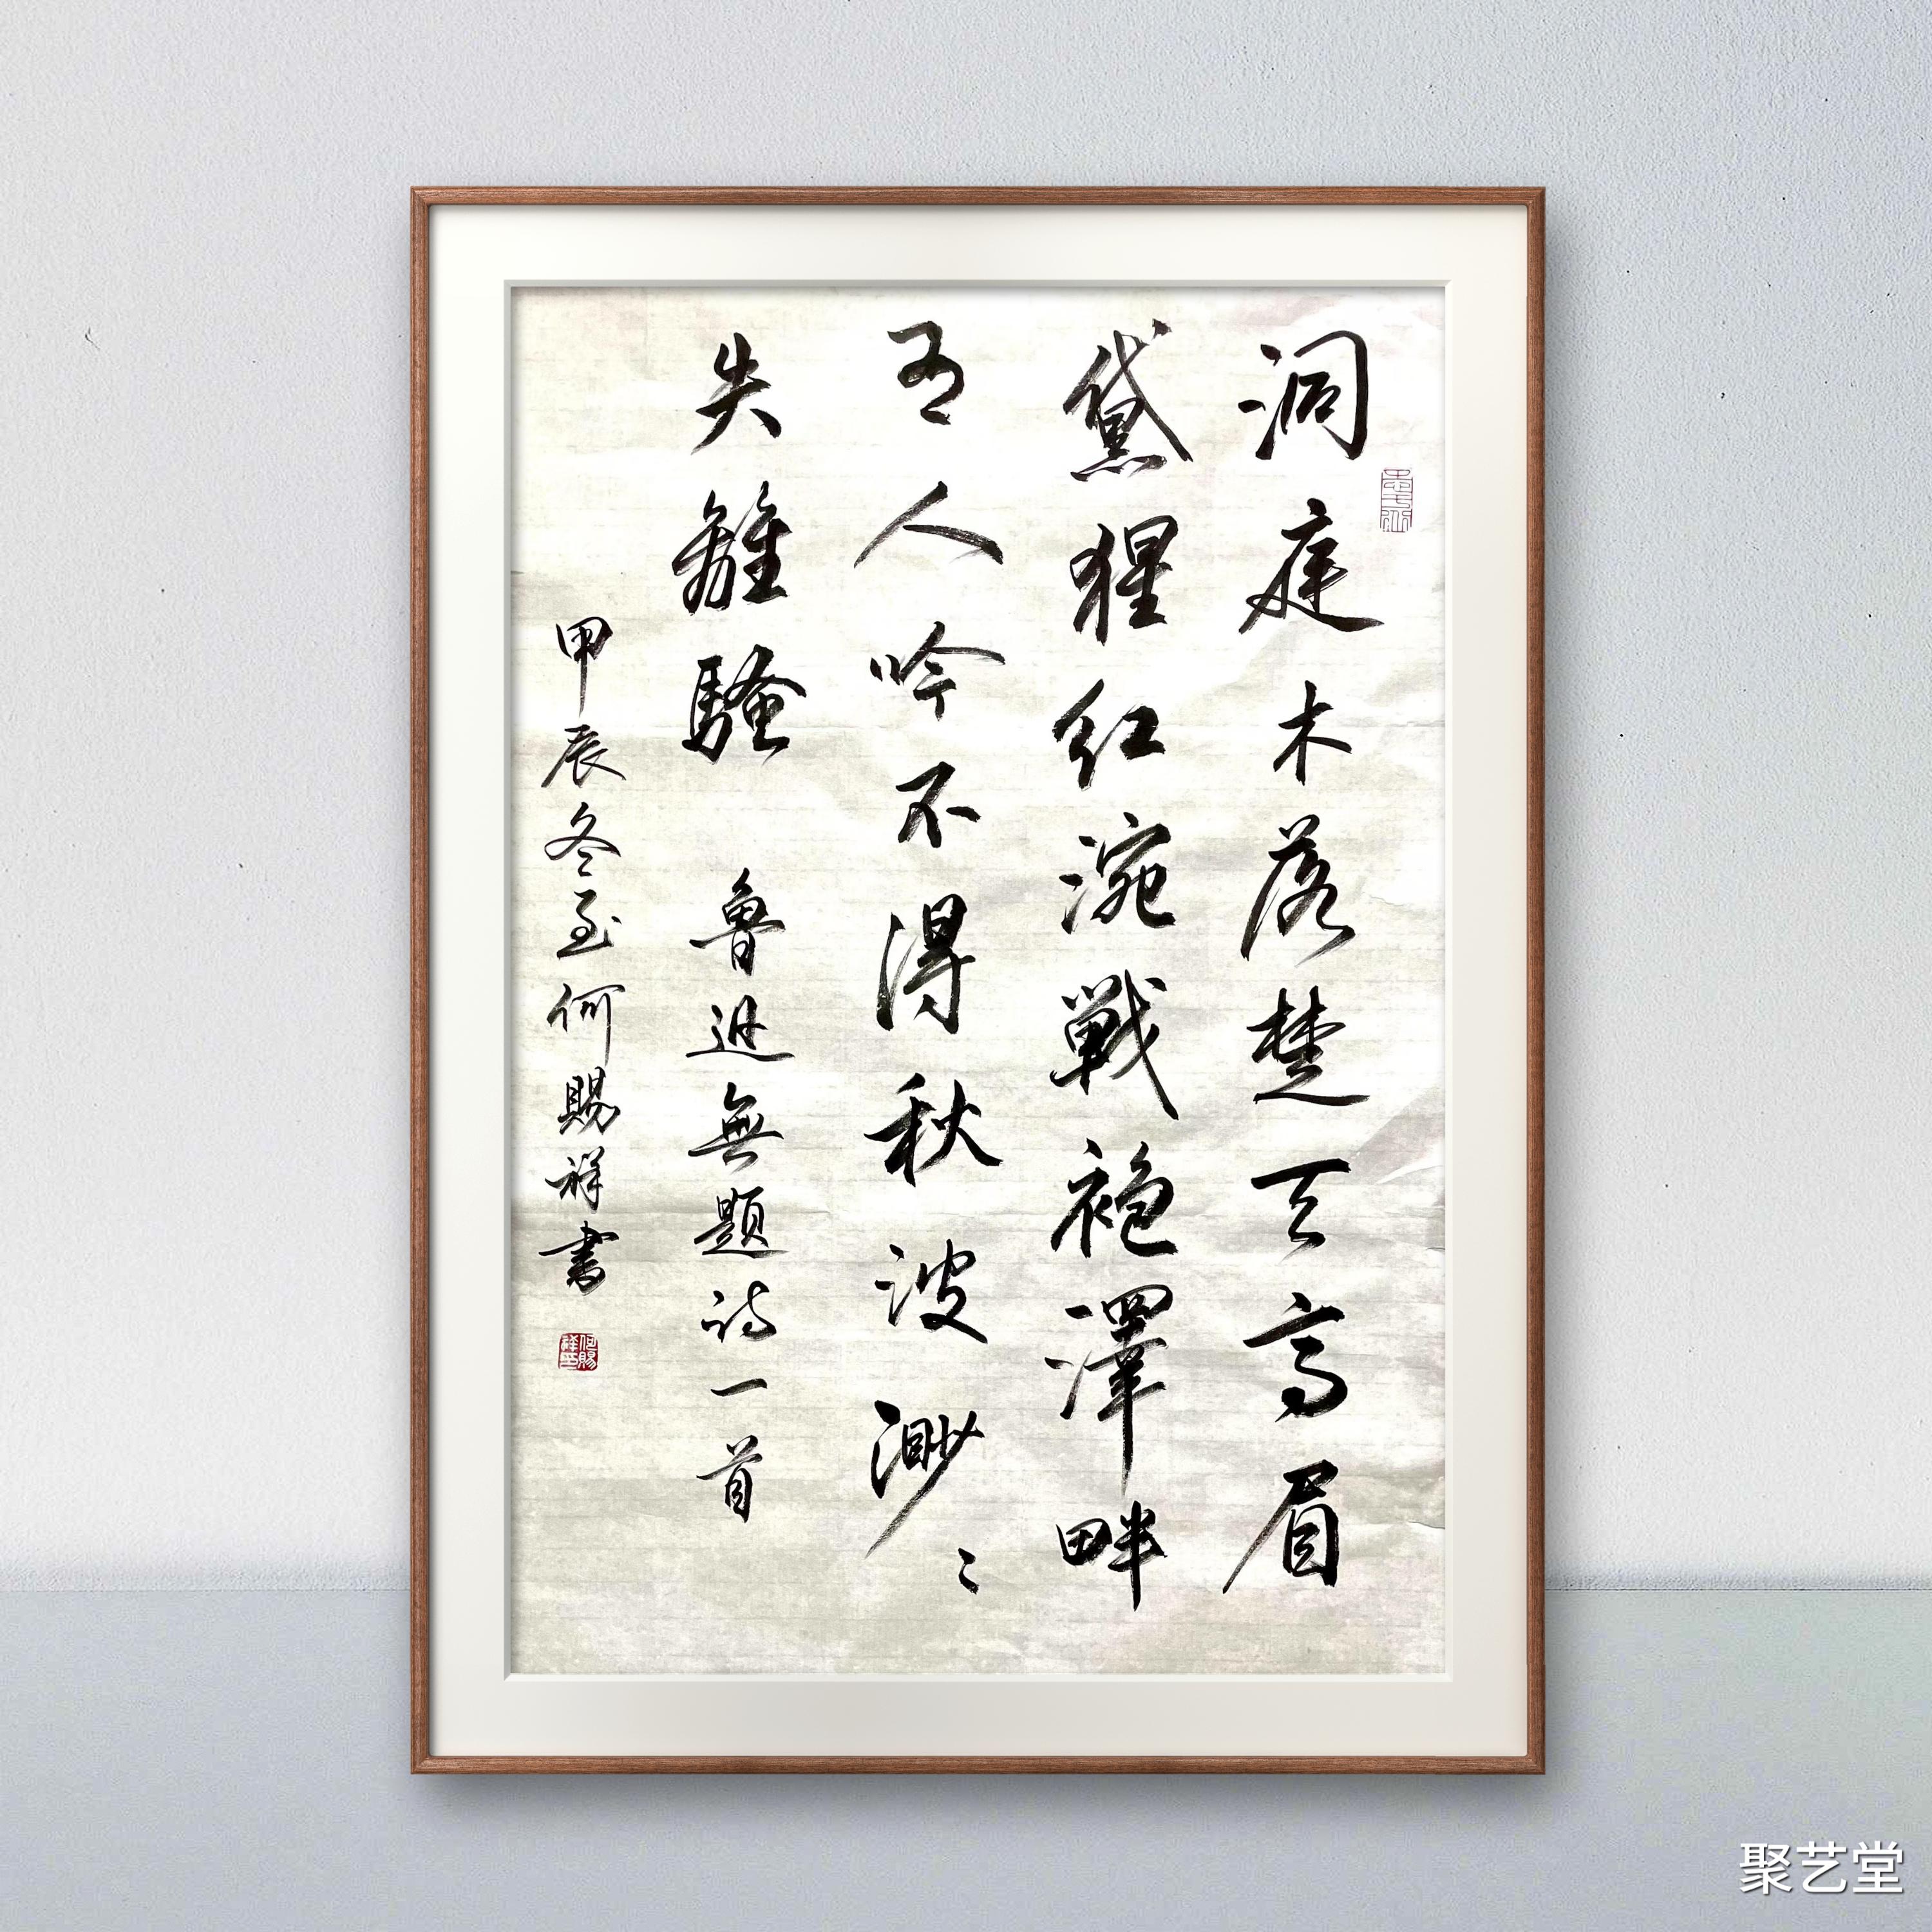 洞庭木落楚天高眉
黛猩红涴戰袍澤畔
有人吟不得秋波渺〻
失離騷 魯迅無题诗一首
甲辰冬至何賜祥書
何賜祥印
聚艺堂